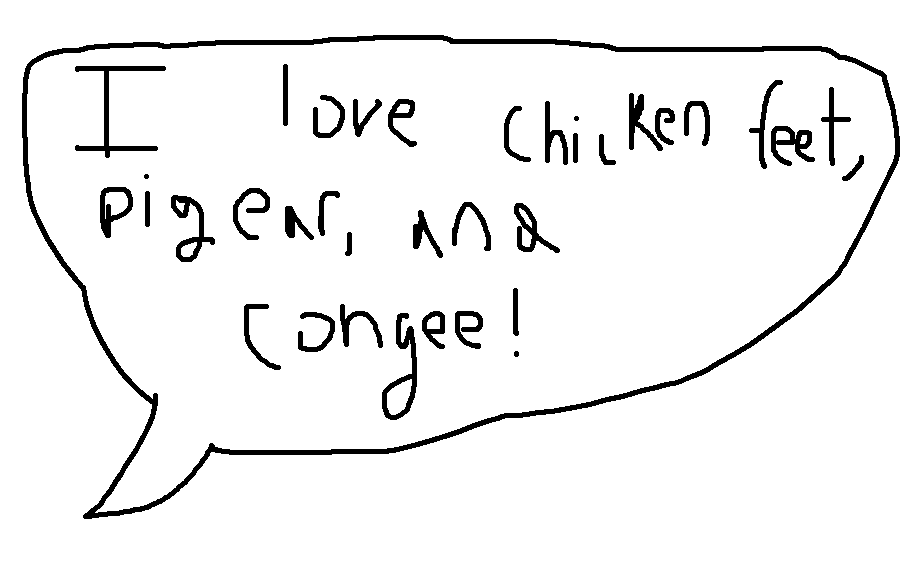 I love chicken feet,
pig ear, and
congee!